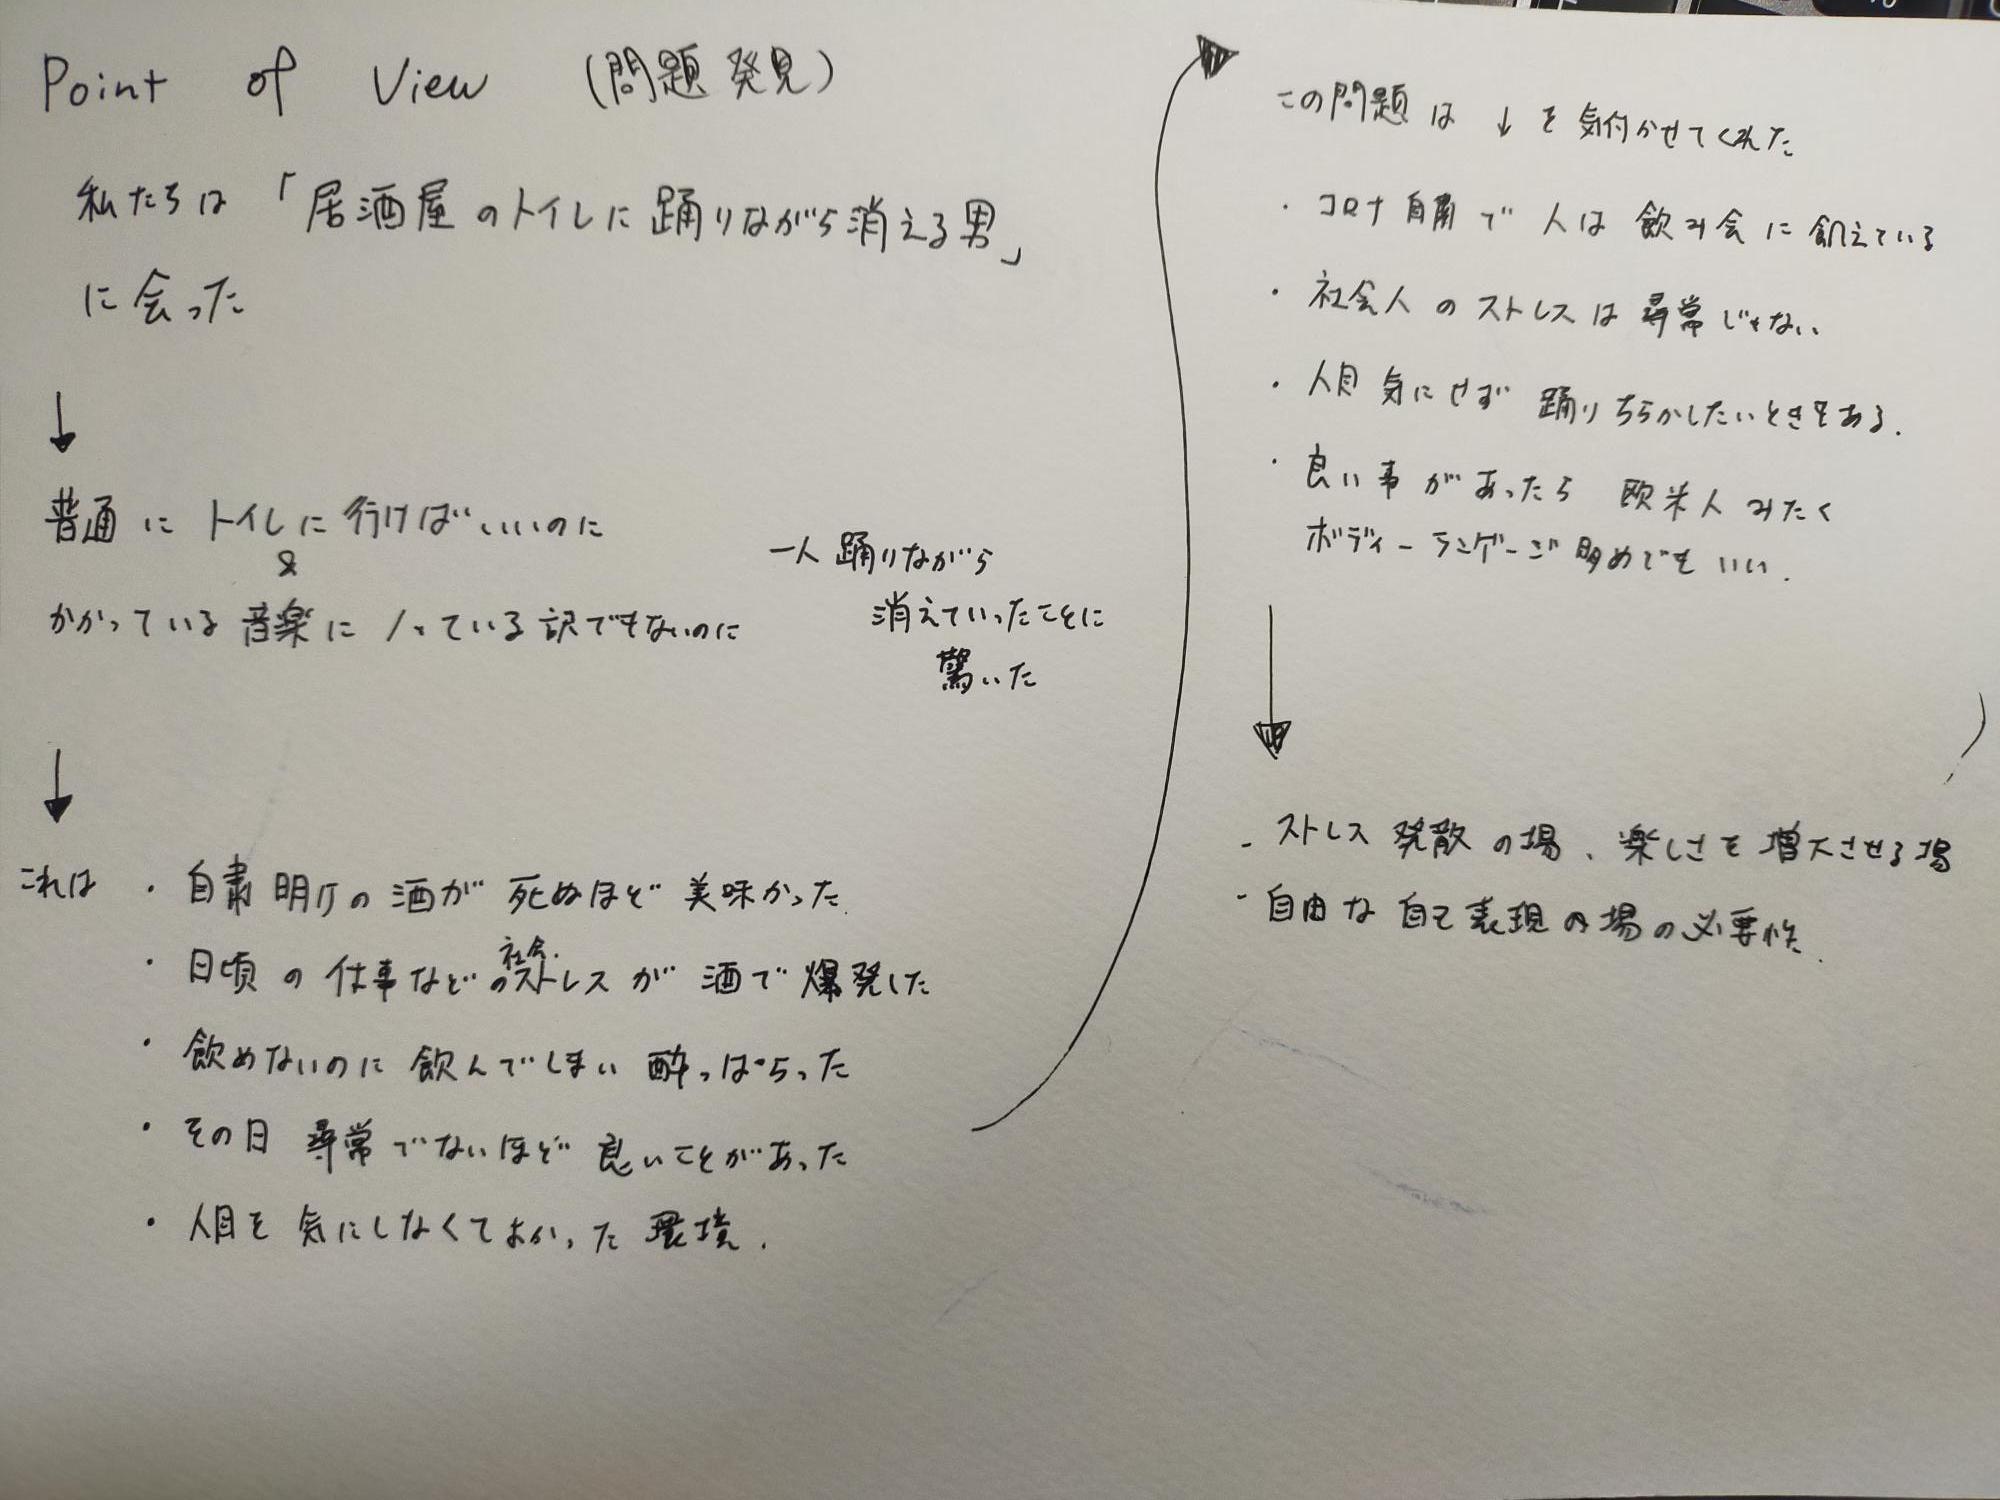 Point of View (問題発見)
私たちは「居酒屋のトイレに踊りながら消える男」
に会った
↓
普通にトイレに行けばいいのに
&
かかっている音楽にノっている訳でもないのに
一人踊りながら
消えていったことに
驚いた
↓
これは ・自粛明けの酒が死ぬほど美味かった.
社会.
・日頃の仕事などのストレスが酒で爆発した
・飲めないのに飲んでしまい酔っぱらった
・その日尋常でないほど良いことがあった
・人目を気にしなくてよかった環境.
この問題は ↓ を気付かせてくれた
・コロナ自粛で人は飲み会に飢えている
・社会人のストレスは尋常じゃない
・人目気にせず踊りちらかしたいときもある.
・良い事があったら欧米人みたく
ボディーランゲージ多めでもいい.
↓
- ストレス発散の場、楽しさを増大させる場
- 自由な自己表現の場の必要性.